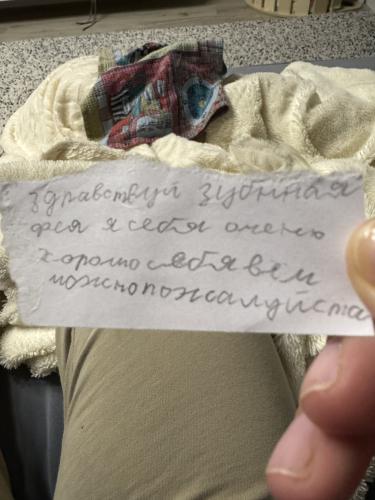 здравствуй зубнная
фея я себя очено
хорошо себя вем
можнопожалуйста